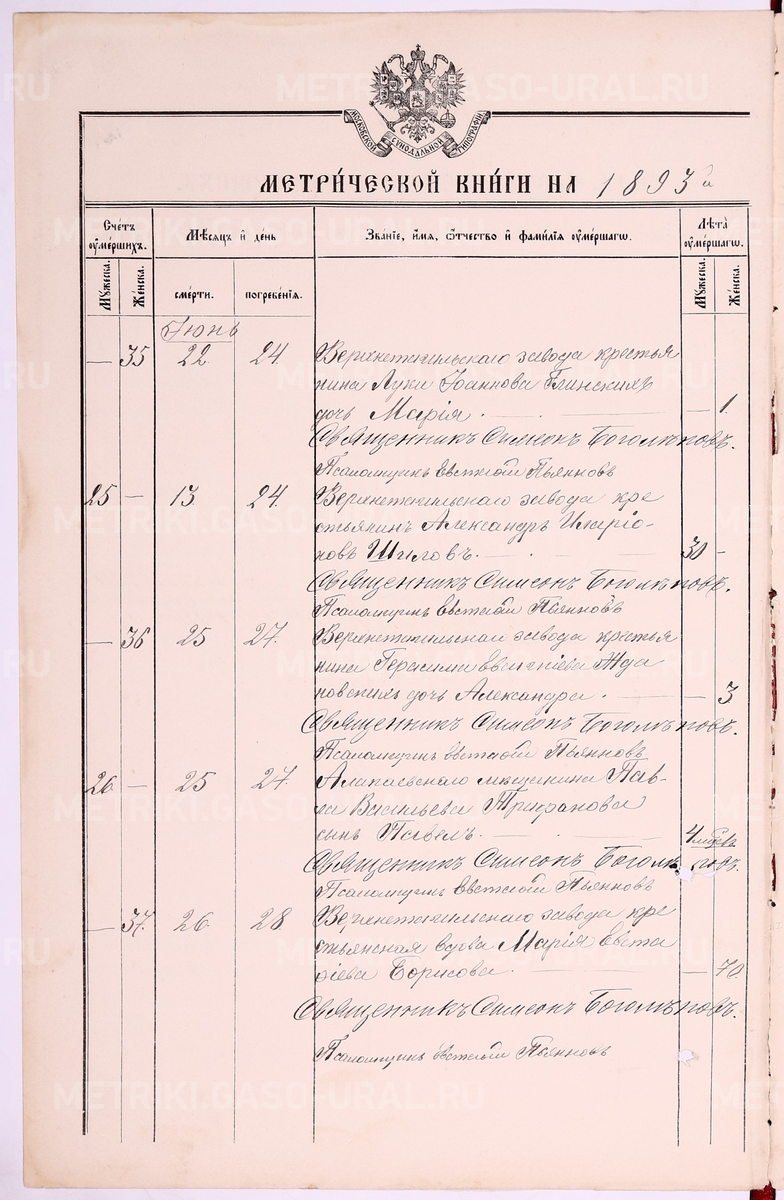 METRIKI.GASO-URAL.RU
МОСКОВСКОЙ СѴНОДАЛЬНОЙ ТИПОГРАФІИ
МЕТРИ́ЧЕСКОЙ КНИ́ГИ НА 1893 й
Сче́тъ ᲂуме́ршихъ. Мѣ́сяцъ и҆ де́нь Зва́нїе, и҆́мѧ, ѻ҆́тчество и҆ фами́лїѧ ᲂуме́ршагѡ. Лѣ́та ᲂуме́ршагѡ.
Мꙋ́жеска. Же́нска. сме́рти. погребе́нїѧ. Мꙋ́жеска. Же́нска.
Іюнь
— 35 22 24. Верхнетагильскаго завода крестья
нина Луки Іоаннова Глинскихъ
дочь Марія. — 1.
Священникъ Симеонъ Боголѣповъ.
Псаломщикъ Евстафій Пьянковъ
25 — 13. 24. Верхнетагильскаго завода кре
стьянинъ Александръ Иларіо-
новъ Шиловъ. 30 —
Священникъ Симеонъ Боголѣповъ.
Псаломщикъ Евстафій Пьянковъ
— 36 25 27. Верхнетагильскаго завода крестья
нина Герасима Евгеніева Жда
новскихъ дочь Александра. — 3
Священникъ Симеонъ Боголѣповъ.
Псаломщикъ Евстафій Пьянковъ
26 — 25 27. Алапаевскаго мѣщанина Пав-
ла Васильева Трифанова
сынъ Павелъ. 4 мѣсяц.
Священникъ Симеонъ Боголѣповъ.
Псаломщикъ Евстафій Пьянковъ
— 37. 26 28 Верхнетагильскаго завода кре
стьянская вдова Марія Евста
фіева Борисова. — 70.
Священникъ Симеонъ Боголѣповъ.
Псаломщикъ Евстафій Пьянковъ